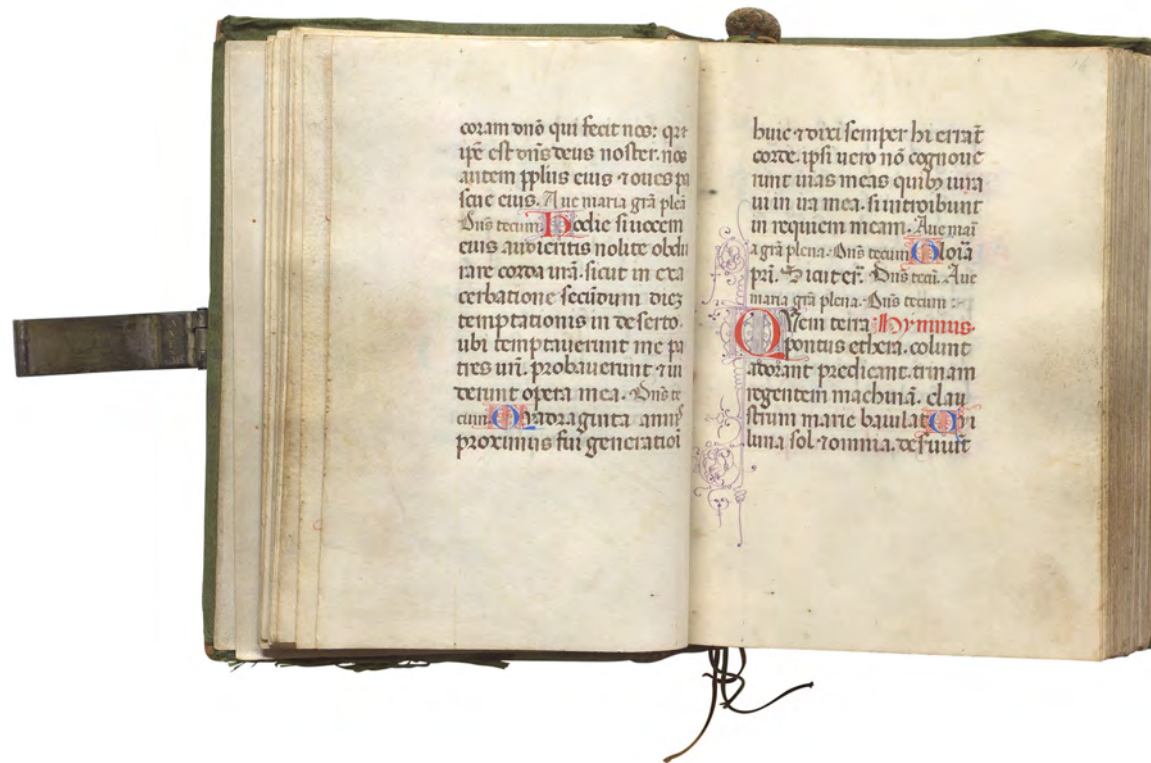 coram dnō qui fecit nos: qꝛ
ip̄e est dn̄s deus noster. nos
autem pp̄lus eius ⁊ oues pa
scue eius. Aue maria grā plēa
Dn̄s tecum. Hodie si uocem
eius audieritis nolite obdu
rare corda urā. sicut in exa
cerbatione secūdum diez
temptationis in deserto.
ubi temptauerunt me pa
tres urī. probauerunt ⁊ ui
derunt opera mea. Dn̄s te
cum. Quadraginta annis
proximus fui generatiōi
huic ⁊ dixi semper hi errāt
corde. ipsi uero nō cognoue
runt uias meas quibꝫ iura
ui in ira mea. si introibunt
in requiem meam. Aue marī
a grā plena. Dn̄s tecum. Gloiā
prī. Sicut er̄. Dn̄s tecū. Aue
maria grā plena. Dn̄s tecum :
Quem terra Hymnus.
pontus ethera. colunt
adorant predicant. trinam
regentem machinā. clau
strum marie baiulat. Cui
luna sol ⁊ omnia. deseruiūt